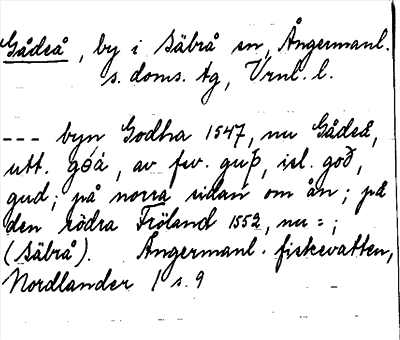 Gådeå, by i Säbrå sn, Ångermanl.
s. doms. tg, Vrnl. l.
--- byn Godha 1547, nu Gådeå,
utt. gǿå, av fsv. guþ, isl. goð,
gud; på norra sidan om ån; på
den södra Fröland 1552, nu = ;
(Säbrå). Ångermanl. fiskevatten,
Nordlander 1 s. 9